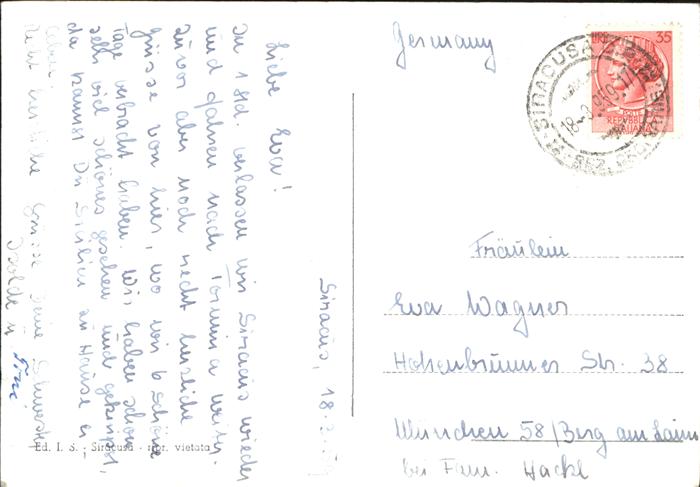 Siracus, 18.3.59
Liebe Eva!
In 1 Std. verlassen wir Siracus wieder
und fahren nach Tormina weiter.
Zuvor aber noch recht herzliche
Grüsse von hier, wo wir 6 schöne
Tage verbracht haben. Wir haben schon
sehr viel schönes gesehen und geknipst,
da kannst Du Sizilien zu Hause
Recht herzliche Grüsse Deine Schwester
Isolde u.
Ed. I. S. - Siracusa - ripr. vietata
Germany
LIRE 35
POSTE
REPUBBLICA
ITALIANA
SIRACUSA
Fräulein
Eva Wagner
Hohenbrunner Str. 38
München 58/Berg am Laim
bei Fam. Hackl